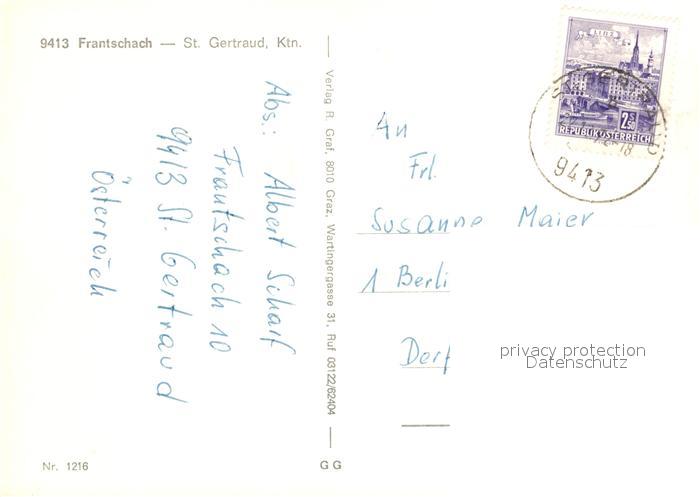 9413 Frantschach — St. Gertraud, Ktn.
Abs.: Albert Scharf
Frantschach 10
9413 St. Gertraud
Österreich
Verlag R. Graf, 8010 Graz, Wartingergasse 31, Ruf 03122/62404
LINZ
2.50
S
REPUBLIK ÖSTERREICH
9413
An
Frl.
Susanne Maier
1 Berli
Dorf
privacy protection
Datenschutz
Nr. 1216
G G